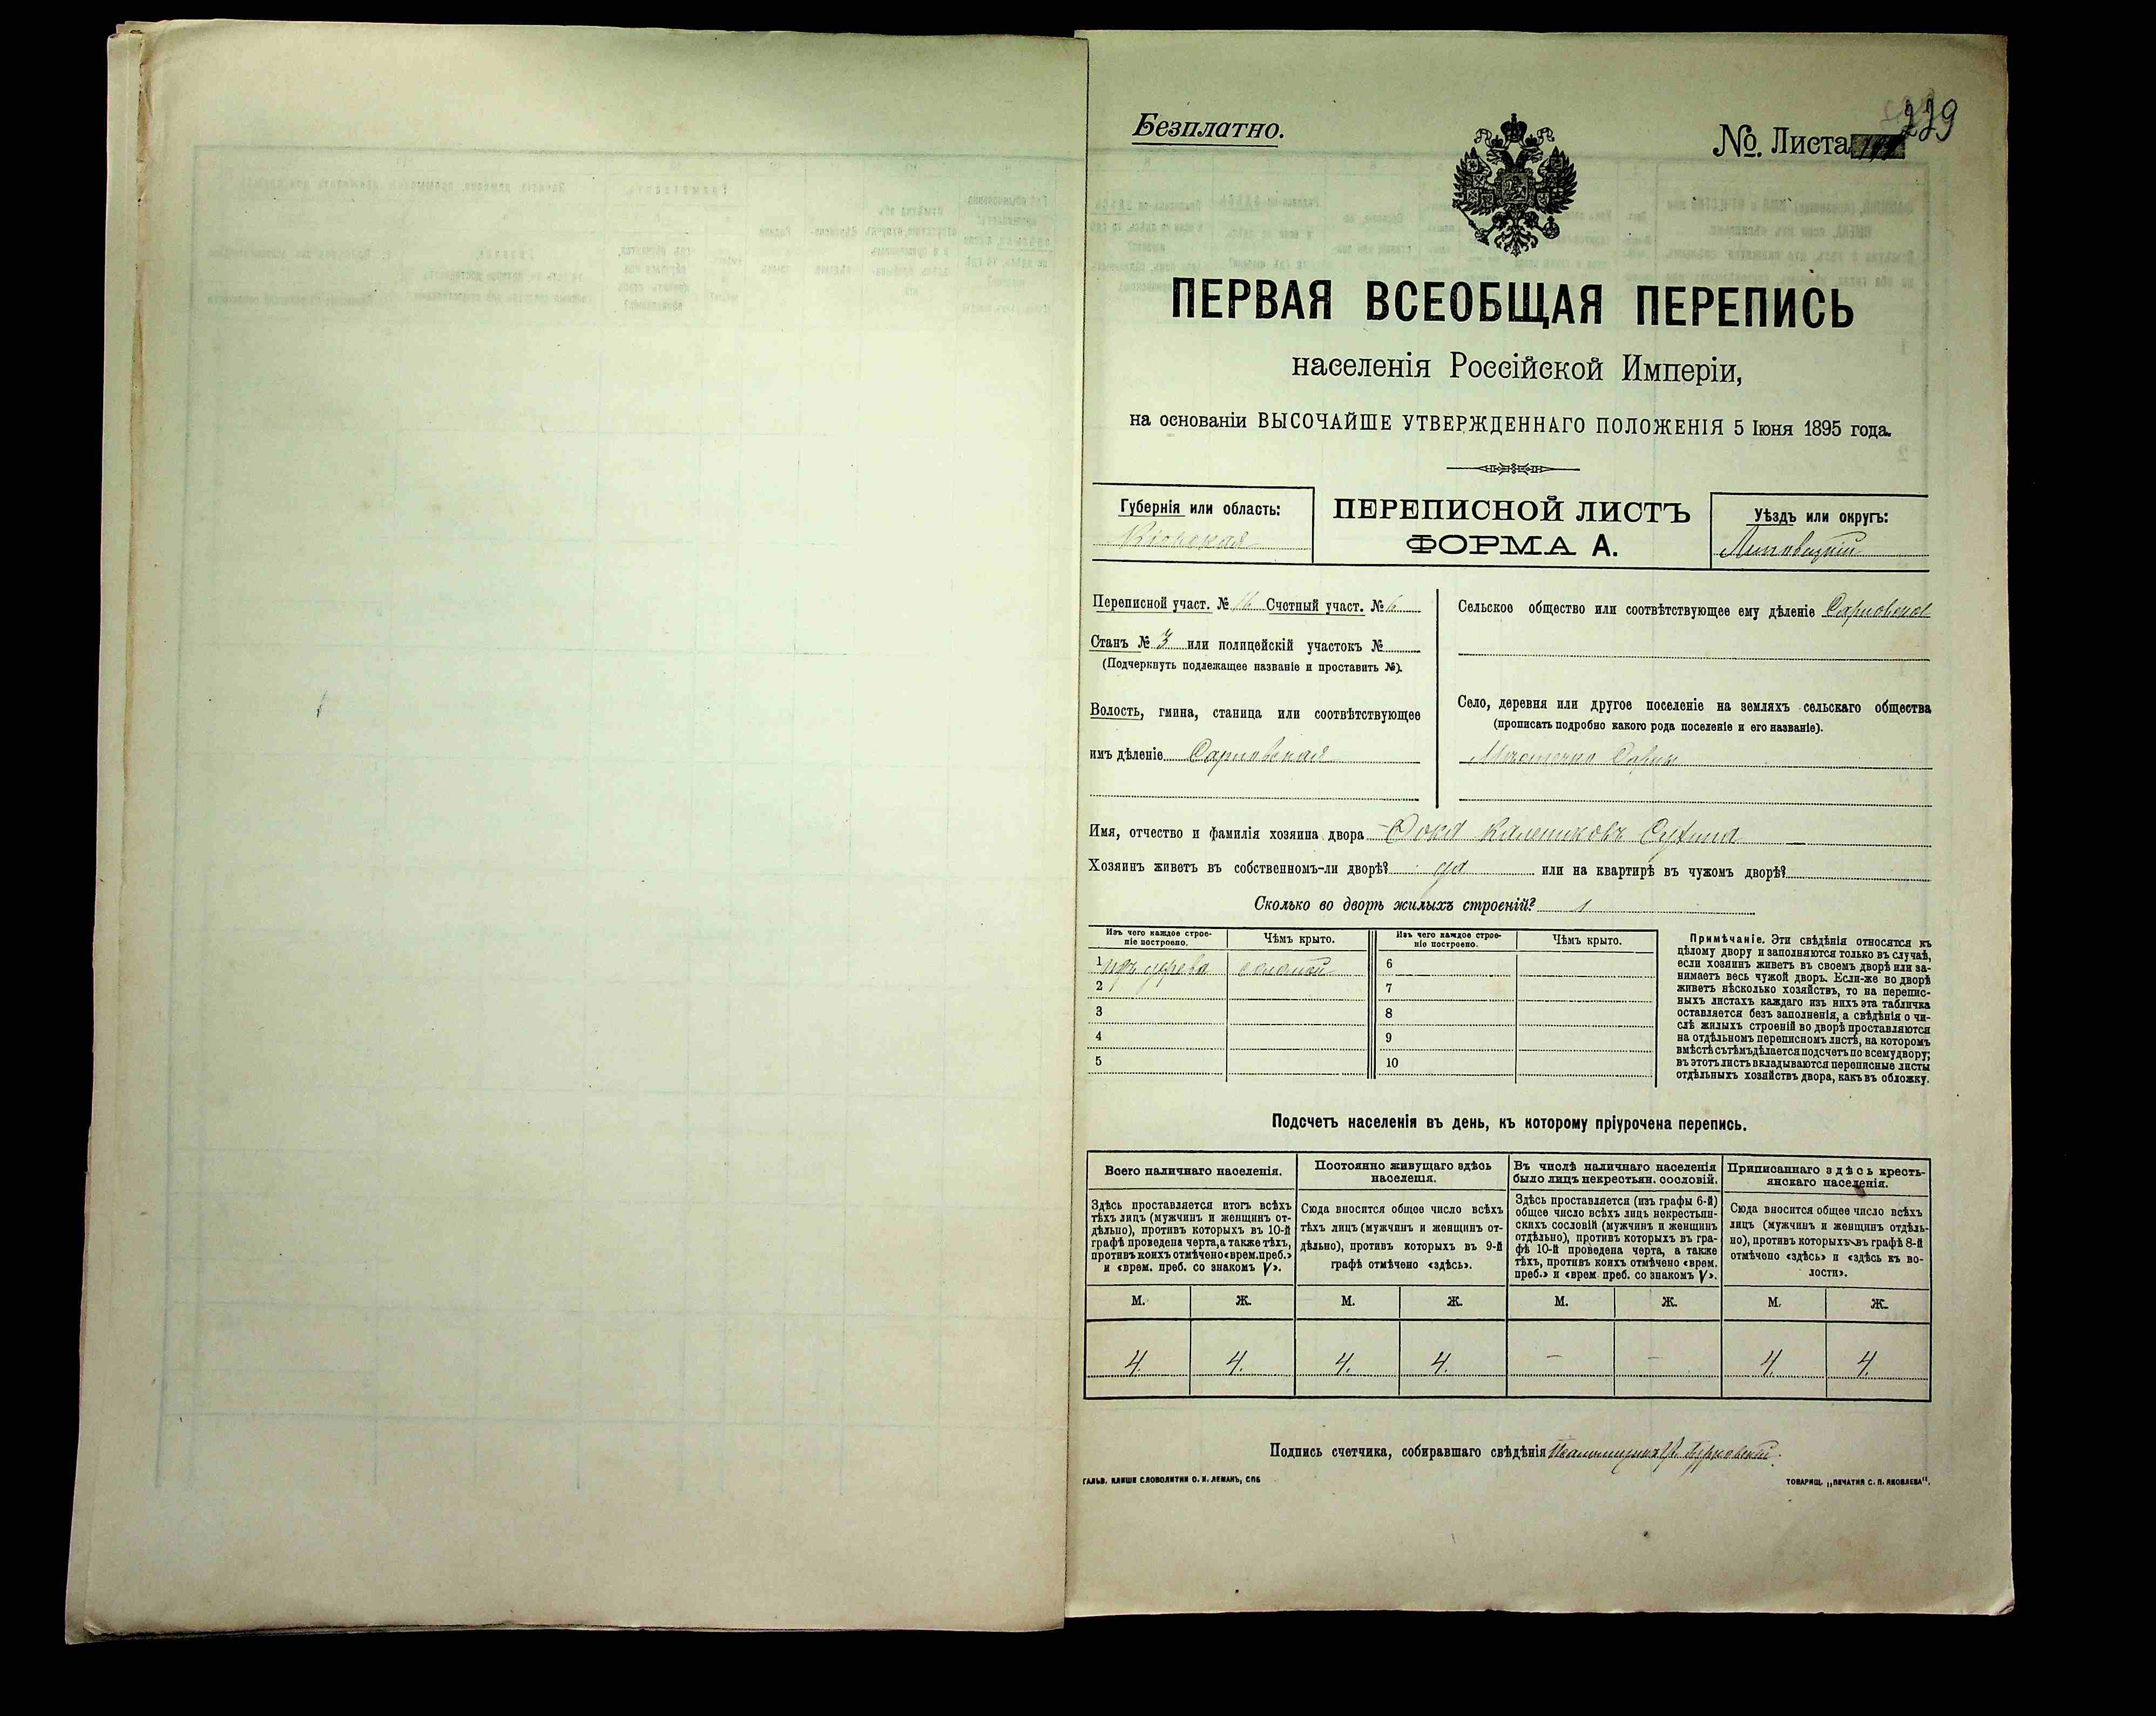 Безплатно.
№. Листа 229
ПЕРВАЯ ВСЕОБЩАЯ ПЕРЕПИСЬ
населенія Россійской Имперіи,
на основаніи ВЫСОЧАЙШЕ УТВЕРЖДЕННАГО ПОЛОЖЕНІЯ 5 Іюня 1895 года.
Губернія или область:
Кіевская
ПЕРЕПИСНОЙ ЛИСТЪ
ФОРМА А.
Уѣздъ или округъ:
Липовецкій
Переписной участ. № 16 Счетный участ. № 6
Станъ № 3 или полицейскій участокъ №
(Подчеркнуть подлежащее названіе и проставить №).
Волость, гмина, станица или соотвѣтствующее
имъ дѣленіе Сарновская
Сельское общество или соотвѣтствующее ему дѣленіе Сарновское
Село, деревня или другое поселеніе на земляхъ сельскаго общества
(прописать подробно какого рода поселеніе и его названіе).
Мѣстечко Сарны
Имя, отчество и фамилія хозяина двора Сухина
Хозяинъ живетъ въ собственномъ-ли дворѣ? да или на квартирѣ въ чужомъ дворѣ?
Сколько во дворѣ жилыхъ строеній? 1
Изъ чего каждое строе-
ніе построено.
Чѣмъ крыто.
Изъ чего каждое строе-
ніе построено.
Чѣмъ крыто.
1 изъ дерева соломой 6
2 7
3 8
4 9
5 10
Примѣчаніе. Эти свѣдѣнія относятся къ
цѣлому двору и заполняются только въ случаѣ,
если хозяинъ живетъ въ своемъ дворѣ или за-
нимаетъ весь чужой дворъ. Если-же во дворѣ
живетъ нѣсколько хозяйствъ, то на перепис-
ныхъ листахъ каждаго изъ нихъ эта табличка
оставляется безъ заполненія, а свѣдѣнія о чи-
слѣ жилыхъ строеній во дворѣ проставляются
на отдѣльномъ переписномъ листѣ, на которомъ
вмѣстѣ съ тѣмъ дѣлается подсчетъ по всему двору;
въ этотъ листъ вкладываются переписные листы
отдѣльныхъ хозяйствъ двора, какъ въ обложку.
Подсчетъ населенія въ день, къ которому пріурочена перепись.
Всего наличнаго населенія.
Здѣсь проставляется итогъ всѣхъ
тѣхъ лицъ (мужчинъ и женщинъ от-
дѣльно), противъ которыхъ въ 10-й
графѣ проведена черта, а также тѣхъ,
противъ коихъ отмѣчено «врем. преб.»
и «врем. преб. со знакомъ V».
Постоянно живущаго здѣсь
населенія.
Сюда вносится общее число всѣхъ
тѣхъ лицъ (мужчинъ и женщинъ от-
дѣльно), противъ которыхъ въ 9-й
графѣ отмѣчено «здѣсь».
Въ числѣ наличнаго населенія
было лицъ некрестьян. сословій.
Здѣсь проставляется (изъ графы 6-й)
общее число всѣхъ лицъ некрестьян-
скихъ сословій (мужчинъ и женщинъ
отдѣльно), противъ которыхъ въ гра-
фѣ 10-й проведена черта, а также
тѣхъ, противъ коихъ отмѣчено «врем.
преб.» и «врем преб. со знакомъ V».
Приписаннаго здѣсь кресть-
янскаго населенія.
Сюда вносится общее число всѣхъ
лицъ (мужчинъ и женщинъ отдѣль-
но), противъ которыхъ въ графѣ 8-й
отмѣчено «здѣсь» и «здѣсь къ во-
лости».
М. Ж. М. Ж. М. Ж. М. Ж.
4. 4. 4. 4. — — 4. 4.
Подпись счетчика, собиравшаго свѣдѣнія
ГАЛЬВ. КЛИШЕ СЛОВОЛИТНИ О. И. ЛЕМАНЪ, СПБ
ТОВАРИЩ. „ПЕЧАТНЯ С. П. ЯКОВЛЕВА".